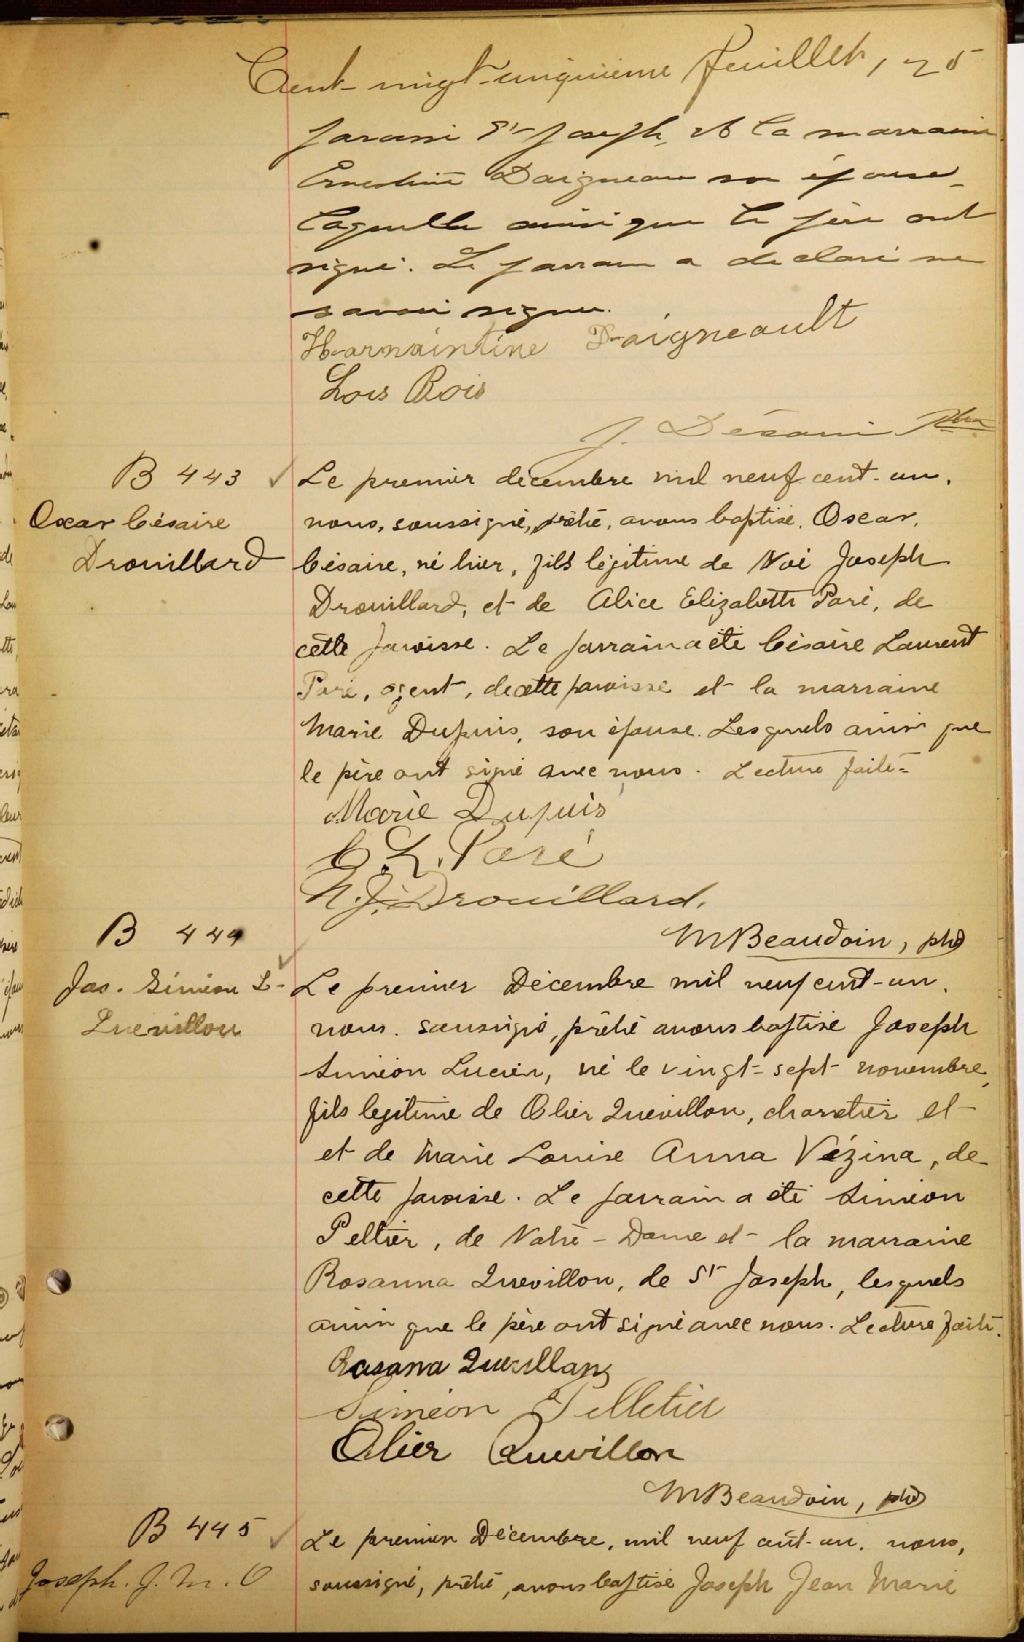 Cent-vingt-cinquième feuillet, 125
paroisse St-Joseph, et la marraine
Ernestine Daigneau son épouse
laquelle ainsi que le père ont
signé. Le parrain a déclaré ne
savoir signer.
Harmaintine Daigneault
Lois Rois
J. Désani Ptre
B 443
Oscar Césaire
Drouillard
Le premier décembre mil neuf cent-un,
nous, soussigné, prêtre, avons baptisé, Oscar,
Césaire, né hier, fils légitime de Noé Joseph
Drouillard, et de Alice Elizabeth Paré, de
cette paroisse. Le parrain a été Césaire Laurent
Paré, agent, de cette paroisse et la marraine
Marie Dupuis, son épouse. Lesquels ainsi que
le père ont signé avec nous. Lecture faite=
Marie Dupuis
C. L. Paré
N. J. Drouillard.
MBeaudoin, ptre
B 444
Jos. Siméon L-
Quevillon
Le premier Décembre mil neuf cent-un,
nous. soussigné, prêtre avons baptisé Joseph
Siméon Lucien, né le vingt-sept novembre,
fils legitime de Olier Quevillon, charretier et
et de Marie Louise Anna Vézina, de
cette paroisse. Le parrain a été Siméon
Peltier, de Notre-Dame et la marraine
Rosanna Quevillon, de St Joseph, lesquels
ainsi que le père ont signé avec nous. Lecture faite.
Rosana Quevillon
Siméon Pelletier
Olier Quevillon
MBeaudoin, ptre
B 445
Joseph. J. M. O
Le premier Décembre, mil neuf cent-un. nous,
soussigné, prêtre, avons baptisé Joseph Jean Marie